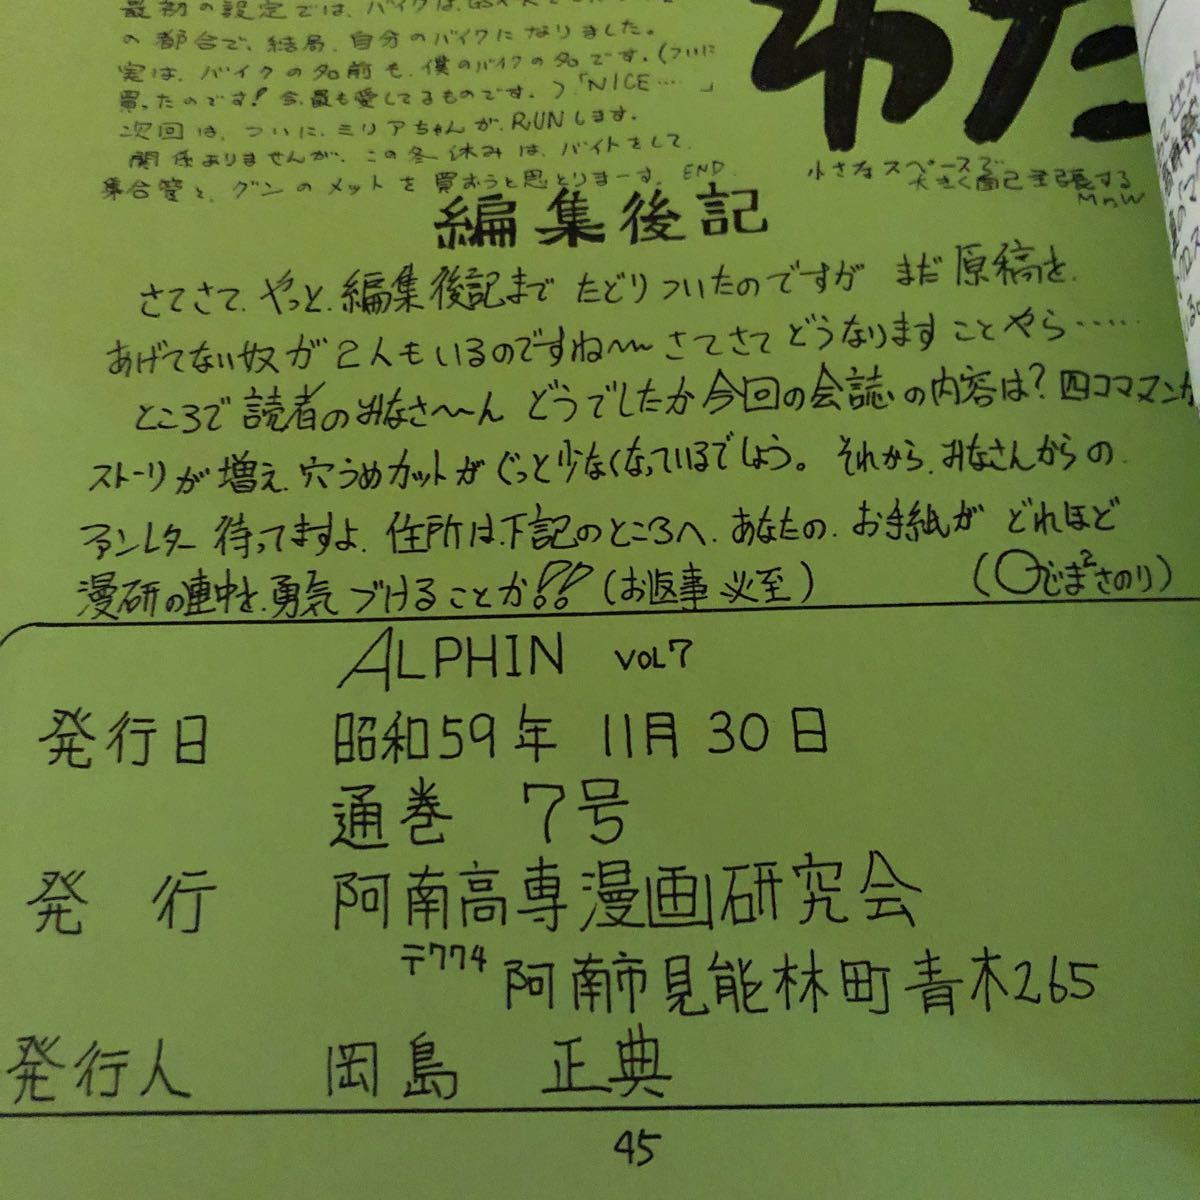 最初の設定では、バイクは、
の都合で、結局、自分のバイクになりました。
実は、バイクの名前も、僕のバイクの名です。(ついに
買ったのです!今、最も愛してるものです。)「NICE……」
次回は、ついに、ミリアちゃんが、RUNします。
関係ありませんが、この冬休みは、バイトをして、
集合管と、グンのメットを買おうと思とりまーす。END.
わた
小さなスペースで
大きく自己主張する
MnW
編集後記
さてさて、やっと、編集後記までたどりついたのですが まだ原稿を、
あげてない奴が2人もいるのですね〜〜さてさてどうなりますことやら……
ところで読者のみなさ〜〜んどうでしたか今回の会誌の内容は?四コママンガ
ストーリが増え、穴うめカットがぐっと少なくなっているでしょう。それから、みなさんからの、
ファンレター待ってますよ、住所は、下記のところへ、あなたの、お手紙が どれほど
漫研の連中を、勇気づけることか!!(お返事必至) (○じま²さのり)
ALPHIN VOL7
発行日 昭和59年 11月30日
通巻 7号
発行 阿南高専漫画研究会
〒774 阿南市見能林町青木265
発行人 岡島 正典
45